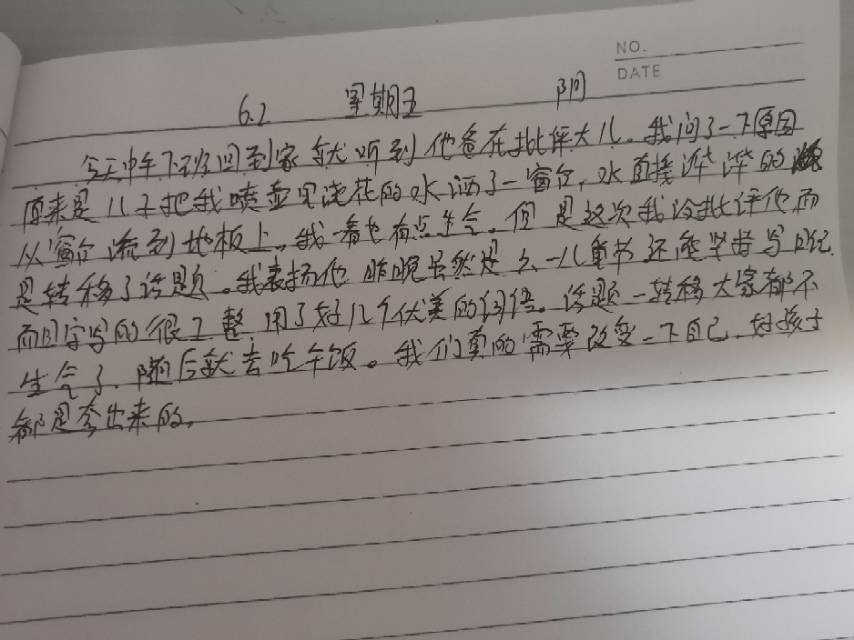 NO.
DATE
6.2 星期五 阴
今天中午下班回到家就听到他爸在批评大儿。我问了一下原因
原来是儿子把我喷壶里浇花的水洒了一窗台,水直接哗哗的
从窗台流到地板上。我一看也有点生气。但是这次我没批评他而
是转移了话题。我表扬他昨晚虽然是六一儿童节还能坚持写日记
而且字写的很工整,用了好几个优美的词语。话题一转移大家都不
生气了,随后就去吃午饭。我们真的需要改变一下自己,好孩子
都是夸出来的。